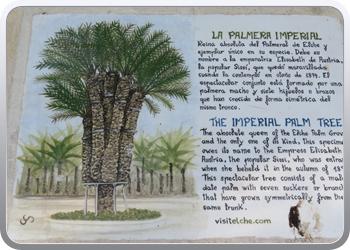 LA PALMERA IMPERIAL
Reina absoluta del Palmeral de Elche y
ejemplar único en su especie. Debe su
nombre a la emperatriz Elisabeth de Austria,
la popular Sissi, que quedó maravillada
cuando la contempló en otoño de 1894. El
espectacular conjunto está formado por una
palmera macho y siete hijuelos o brazos
que han crecido de forma simétrica del
mismo tronco.
THE IMPERIAL PALM TREE
The absolute queen of the Elche Palm Grov
and the only one of its kind. This specimen
owes its name to the Empress Elisabeth
Austria, the popular Sissi, who was entran
when she beheld it in the autumn of 18
This spectacular tree consists of a mal
date palm with seven suckers or branch
that have grown symmetrically from the
same trunk.
visitelche.com